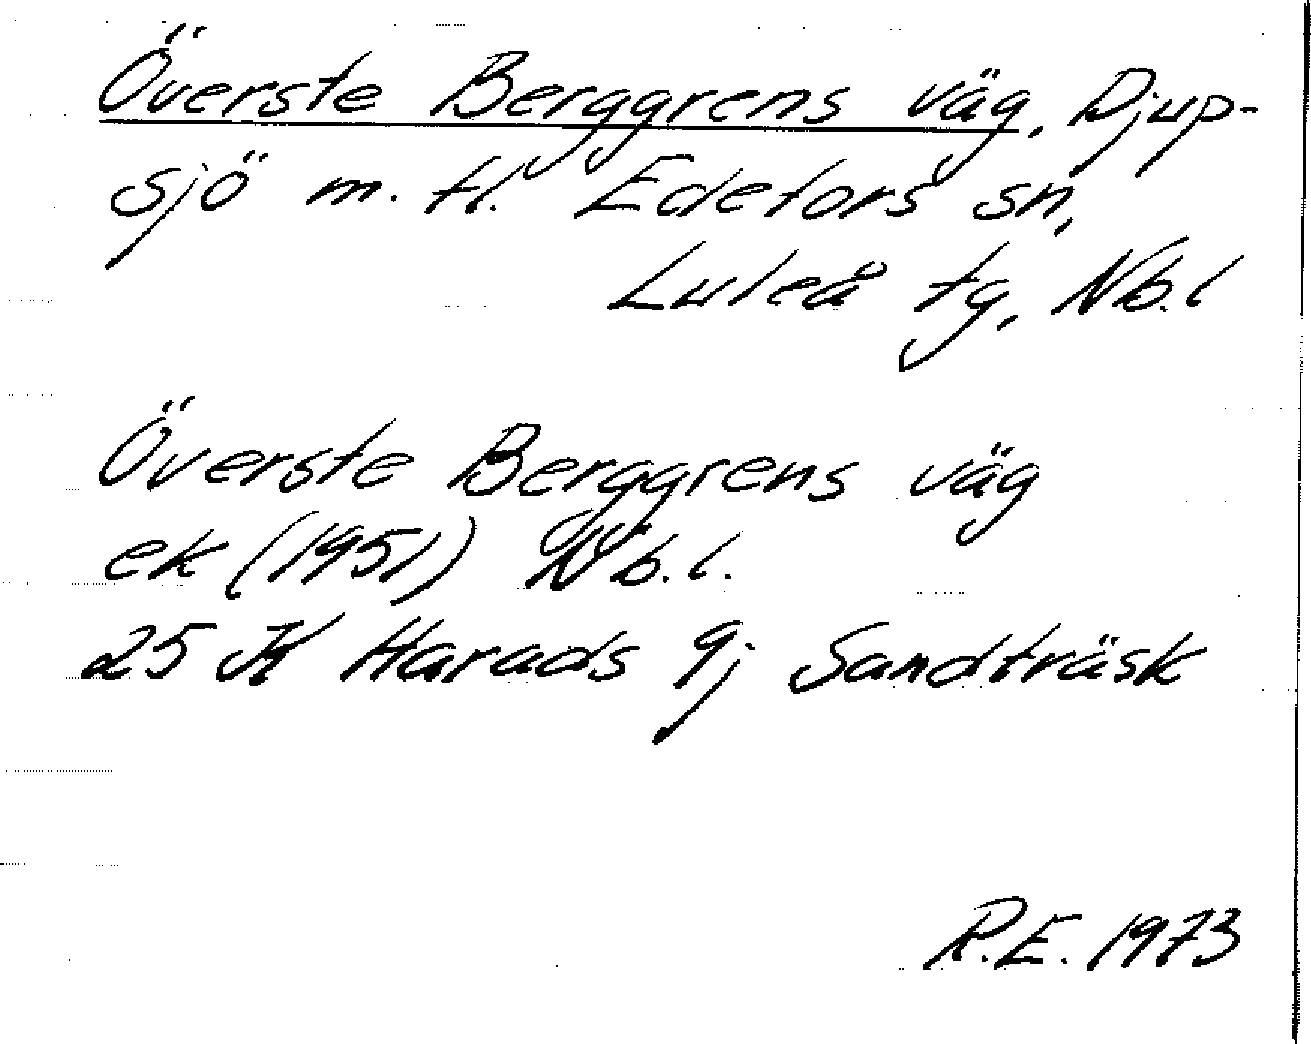 Överste Berggrens väg, Djup-
sjö m. fl. Edefors sn,
Luleå tg, Nb. l
Överste Berggrens väg
ek (1951) Nb. l.
25 K Harads 9j Sandträsk
R.E. 1973